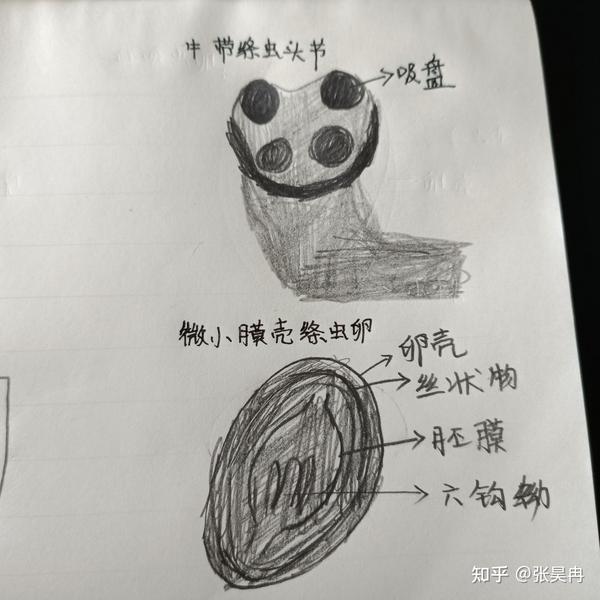 牛带绦虫头节
吸盘
微小膜壳绦虫卵
卵壳
丝状物
胚膜
六钩蚴
知乎 @张昊冉